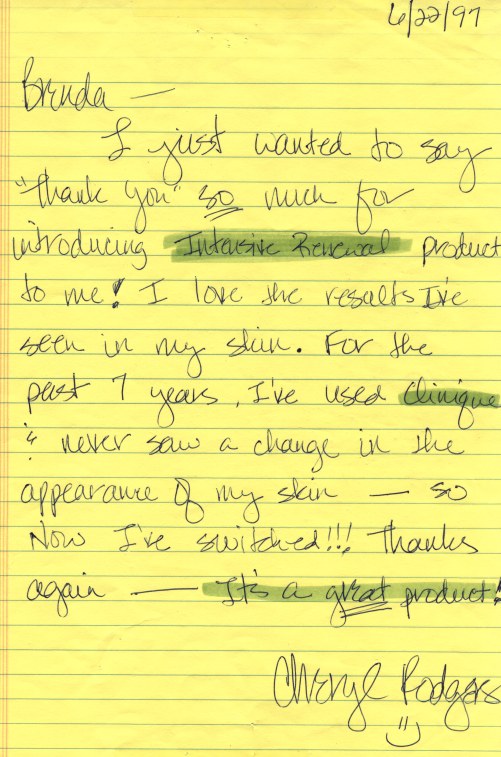 6/22/97
Brenda —
I just wanted to say
"Thank You" so much for
introducing Intensive Renewal product
to me! I love the results I've
seen in my skin. For the
past 7 years, I've used Clinique
& never saw a change in the
appearance of my skin — so
Now I've switched!!! Thanks
again — It's a great product!
Cheryl Rodgers